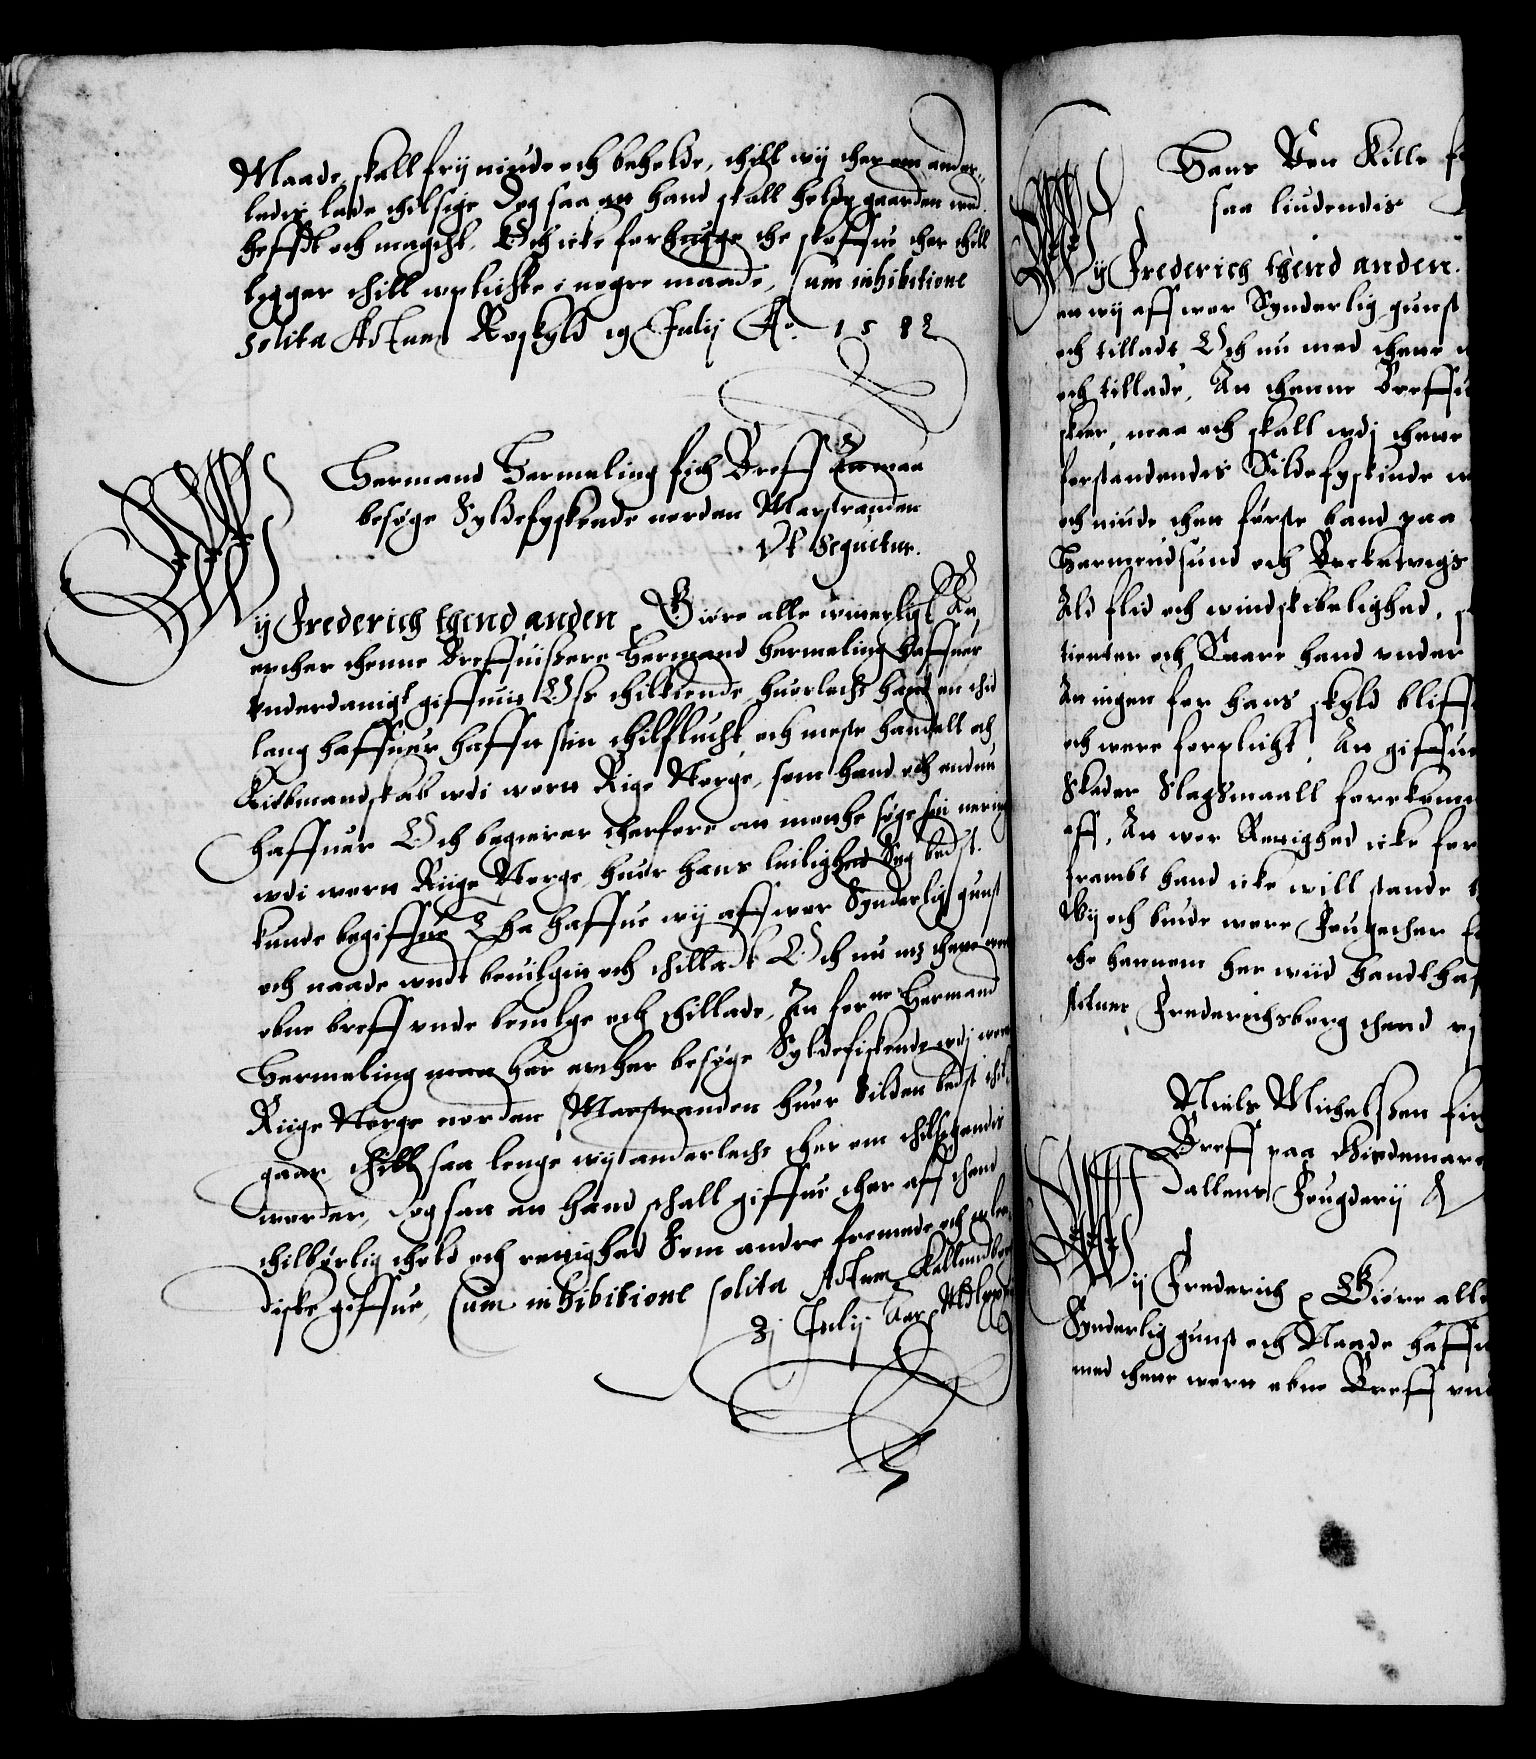 Maade, skall frij niude och beholde, thill wij ther om ander-
ledis lade thilsige Dog saa an hand skall holde gaarden wed
heffdt och magcht, Och icke forhugge the skoffue ther thill
legger thill wplichtt i nogre maade, Cum inhibitione
solita Actum Roskyld 19 Julij Ao. 1582

Hermand Hermeling fich Breff An maa
besøge Syldefyskende norden Marstranden
Vt sequitur.

Wij Frederich thend anden, Giøre alle witterligt An
epther thenne Breffuisere Hermand Hermeling haffuer
vnderdanigst giffuit Oss thilkiende, huorledis hand en thid
lang haffuer hafft sin thilflucht och meste handell och
Kiøbmandskab wdi wort Rige Norge, som hand och endnu
haffuer Och begierer therfore an motthe søge sin nering
wdi wort Riige Norge, huor hans leilighed sig best
kunde begiffue Tha haffue wij aff wor Synderlig gunst
och naade wndt beuilgit och thilladt Och nu med thette wort
obne breff vnde beuilge och thillade, An forne Hermand
Hermeling maa her epther besøge Syldefiskende wdj wort
Riige Norge norden Marstranden huor Silden best thil
gaar, thill saa lenge wij anderledis ther om thilsigendis
worder, Dog saa an hand schall giffue ther aff thend
thilbørlig thold och rettighed Som andre fremede och wdlen-
diske giffue, Cum inhibitione solita Actum Kallundborg
31 Julij Aar

Hans Von Kille
saa liudendis

Wij Frederich thend anden.
an wij aff wor Synderlig gunst
och tilladt, Och nu med thette
och tillade, An thenne Breffui
maa och skall wdj thette
forstandendes Sildefyskinde
och niude then første band paa
Harmendsund och
Ald flid och windskibelighed,
tienter och Suare hand vnder
An ingen for hans skyld bliff
och were forplicht, An giffue
Skader Slagsmaall forekomme
aff, An wor Rettighed icke for
frambt hand icke will stande
Wij och biude wore Fougether
the hannem her wiid handthaf
Actum Frederichsborg thend

Niels Michelssen fich
Breff paa
Dallens Fougderij

Wij Frederich Giøre alle
Synderlig gunst och Naade haffue
med thette wort obne Breff vnd